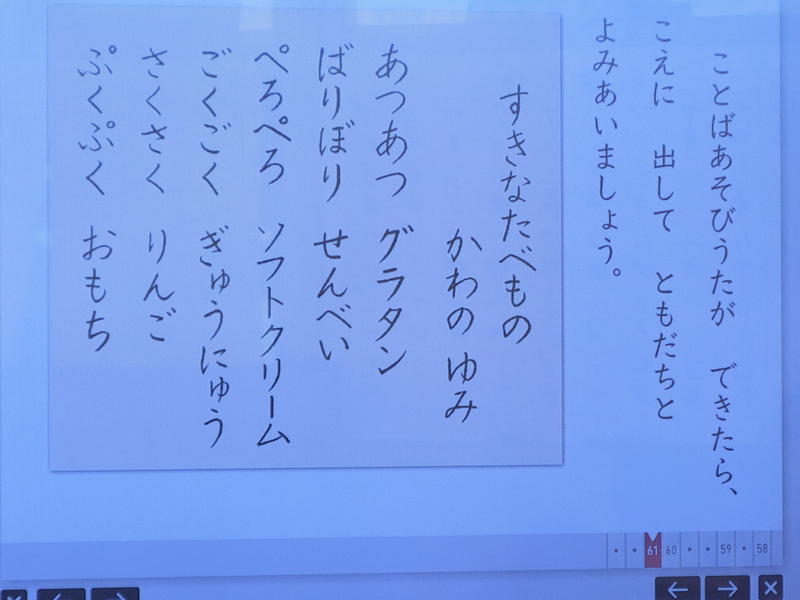 ことばあそびうたが　できたら、
こえに　出して　ともだちと
よみあいましょう。
すきなたべもの
かわの ゆみ
あつあつ　グラタン
ばりぼり　せんべい
ぺろぺろ　ソフトクリーム
ごくごく　ぎゅうにゅう
さくさく　りんご
ぷくぷく　おもち
61 60 59 58